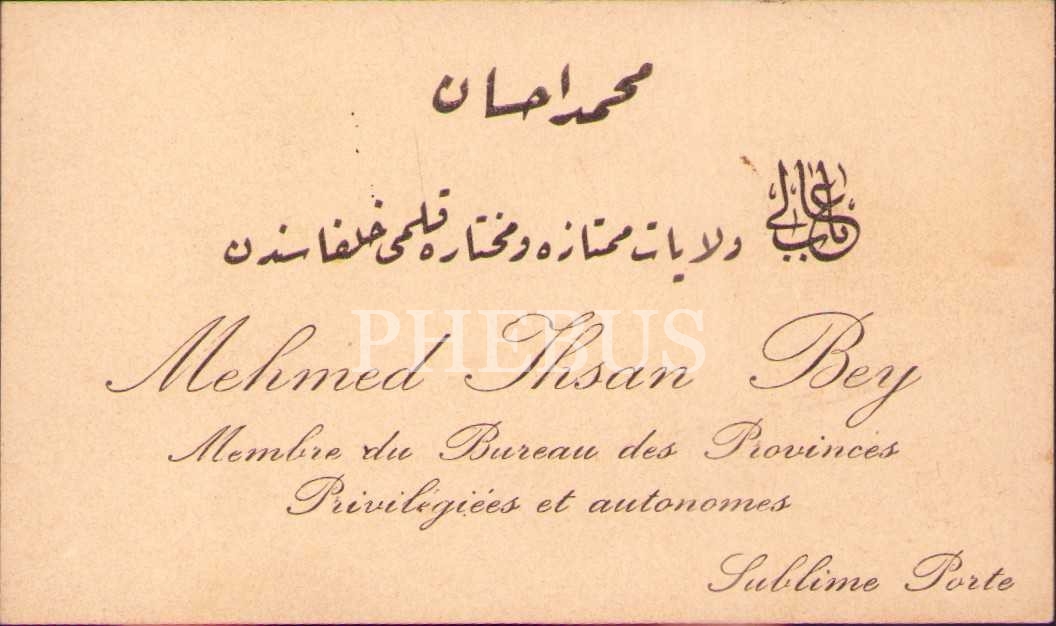 محمد احسان
باب عالی ولایات ممتازه و مختاره قلمی خلفاسندن
PHEBUS
Mehmed Ihsan Bey
Membre du Bureau des Provinces
Priviligiées et autonomes
Sublime Porte